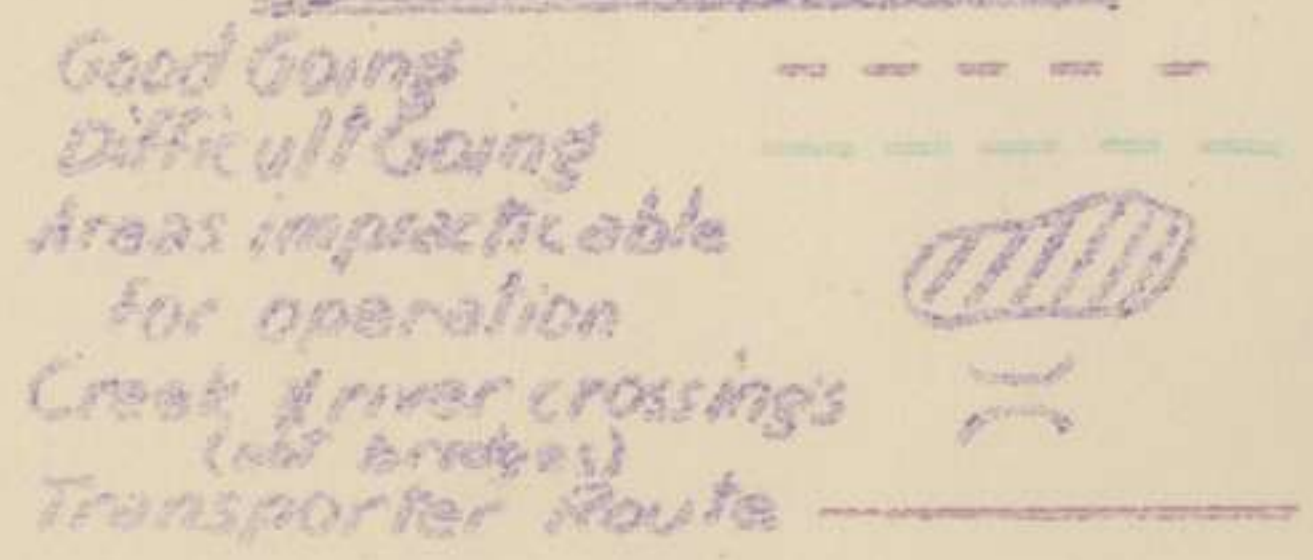 Good Going
Difficult Going
Areas impracticable
for operation
Creek & river crossings
(not bridges)
Transporter Route